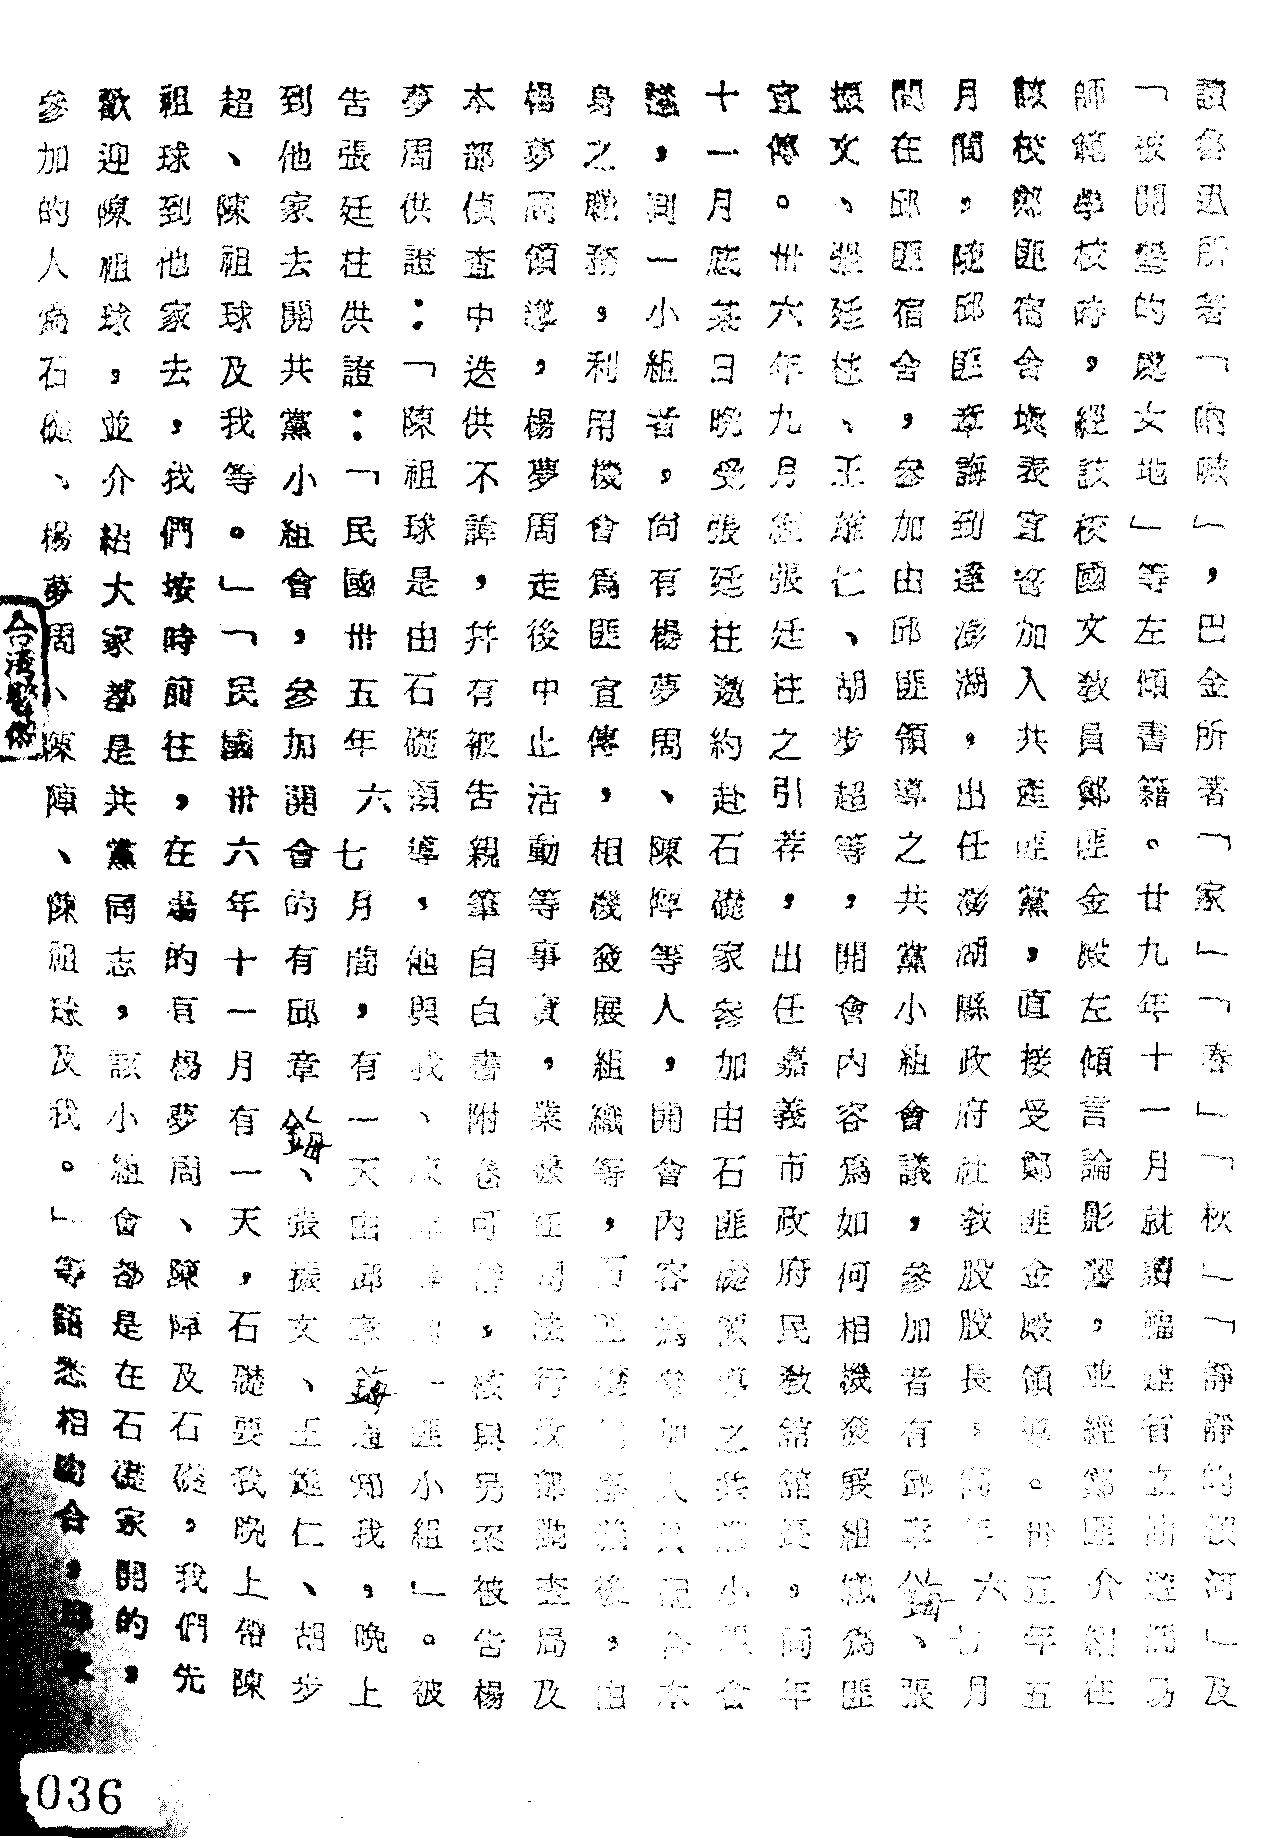 讀魯迅所著「吶喊」，巴金所著「家」「春」「秋」「靜靜的河」及
「被開墾的處女地」等左傾書籍。廿九年十一月就讀福建省立師
師範學校時，經該校國文教員鄭匪金殿左傾言論影響，並經鄭匪介紹在
該校鄭匪宿舍，填表宣誓加入共產匪黨，直接受鄭匪金殿領導。卅五年五
月間，隨邱匪章誨到達澎湖，出任澎湖縣政府社教股股長，同年六七月
間在邱匪宿舍，參加由邱匪領導之共黨小組會議，參加者有邱章、張
振文、張廷柱、王雄仁、胡步超等，開會內容為如何相機發展組織為匪
宣傳。卅六年九月經張廷柱之引荐，出任嘉義市政府民教館館長，同年
十一月底某日晚受張廷柱邀約赴石礎家參加由石匪礎領導之共黨小組會
議，同一小組者，尚有楊夢周、陳陣等人，開會內容為參加人員配合本
身之職務，利用機會為匪宣傳，相機發展組織等，後，由
楊夢周領導，楊夢周走後中止活動等事實，業據在司法行政部調查局及
本部偵查中迭供不諱，并有被告親筆自白書附卷可稽，核與另案被告楊
夢周供證：「陳祖球是由石礎領導，他與我、一匪小組」。被
告張廷柱供證：「民國卅五年六七月間，有一天由邱章誨通知我，晚上
到他家去開共黨小組會，參加開會的有邱章誨、張振文、王雄仁、胡步
超、陳祖球及我等。」「民國卅六年十一月有一天，石礎要我晚上偕陳
祖球到他家去，我們按時前往，在場的有楊夢周、陳陣及石礎，我們先
歡迎陳祖球，並介紹大家都是共黨同志，該小組會都是在石礎家開的，
參加的人為石礎、楊夢周、陳陣、陳祖球及我。」等語悉相吻合，
台灣警備
036